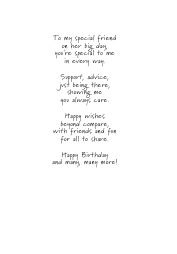 To my special friend
on her big day,
you're special to me
in every way.
Support, advice,
just being there,
showing me
you always care.
Happy wishes
beyond compare,
with friends and fun
for all to share.
Happy Birthday
and many, many more!